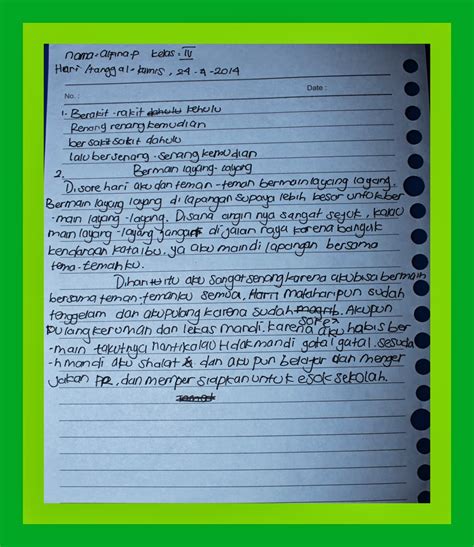 nama = alfina.p kelas: IV
Hari tanggal = kamis, 24-4-2014
No.:
Date:
1. Berakit-rakit dahulu kehulu
Renang renang kemudian
ber sakit sakit dahulu
lalu bersenang-senang kemudian
2. Bermain layang-layang
Di sore hari aku dan teman-teman bermain layang layang.
Berman layang layang di lapangan supaya lebih besar untuk ber
-main layang-layang. Disana angin nya sangat sejuk, kalau
main layang-layang jangan di jalan raya karena banyak
kendaraan kata ibu. ya aku main di lapangan bersama
tema-temanku.
Dihari itu aku sangat senang karena aku bisa bermain
bersama teman-temanku semua. Hari matahari pun sudah
tenggelam dan aku pulang karena sudah magrib. Akupun
sore?
pulang kerumah dan lekas mandi. karena aku habis ber
-main takutnya nanti kalau tidak mandi gatal gatal. sesuda
-h mandi aku shalat & dan aku pun belajar dan menger
jakan PR, dan memper siapkan untuk esok sekolah.